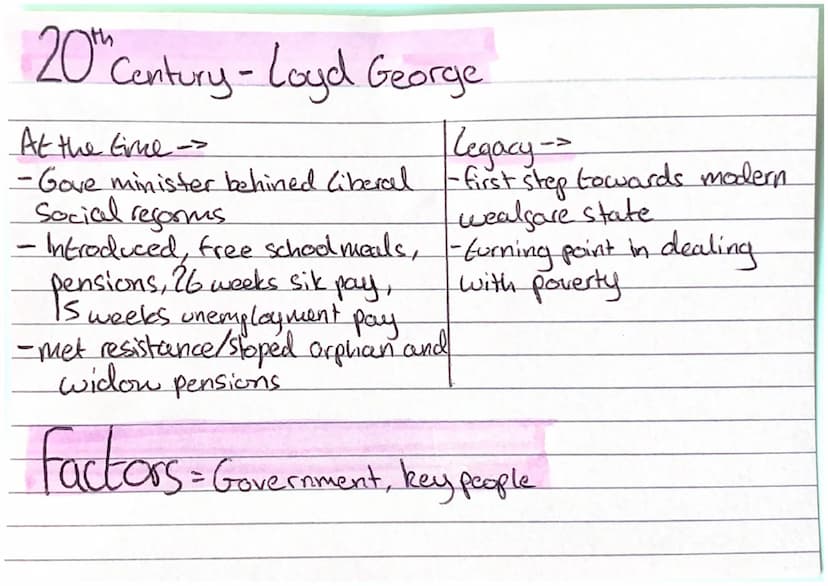 20th Century - Loyd George
At the time ->
- Gove minister behined liberal
Social regorms
- Introduced, free school meals,
pensions, 26 weeks sik pay,
15 weeks unemployment pay
- met resistance/stoped orphan and
widow pensions
Legacy ->
- first step towards modern
wealgare state
- turning point in dealing
with poverty
Factors = Government, key people